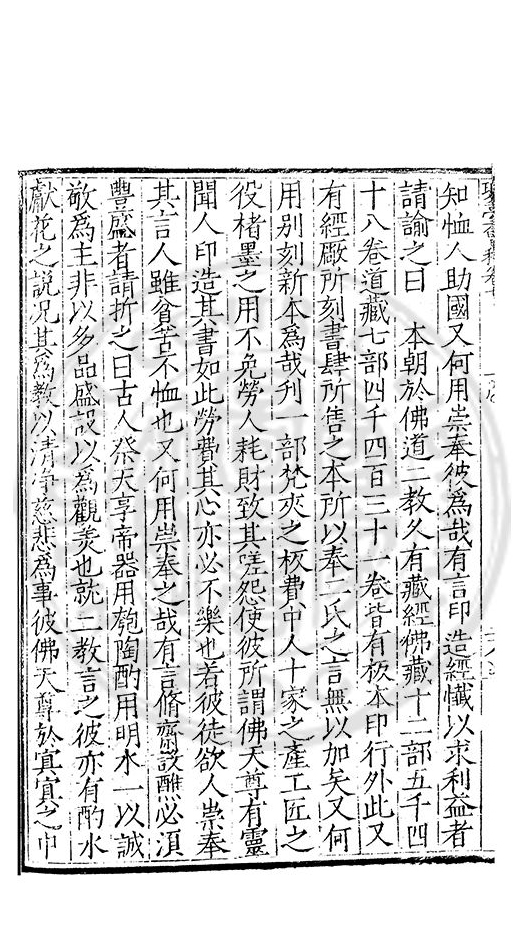 知恤人助國又何用崇奉彼為哉有言印造經懺以求利益者
請諭之曰　本朝於佛道二教久有藏經佛藏十二部五千四
十八卷道藏七部四千四百三十一卷皆有板本印行外此又
有經厰所刻書肆所售之本所以奉二氏之言無以加矣又何
用别刻新本為哉刋一部梵夾之板費中人十家之產工匠之
役楮墨之用不免勞人耗財致其嗟怨使彼所謂佛天尊有靈
聞人印造其書如此勞費其心亦必不樂也若彼徒欲人崇奉
其言人雖貧苦不恤也又何用崇奉之哉有言脩齋設醮必須
豐盛者請折之曰古人祭天享帝器用匏陶酌用明水一以誠
敬為主非以多品盛設以為觀羙也就二教言之彼亦有酌水
獻花之説况其為教以清浄慈悲為事彼佛天尊於寘寘之中